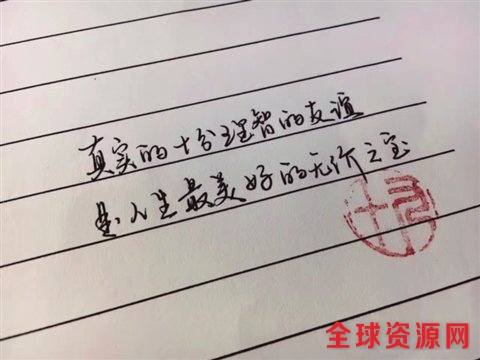 真实的十分理智的友谊
是人生最美好的无价之宝
全球资源网